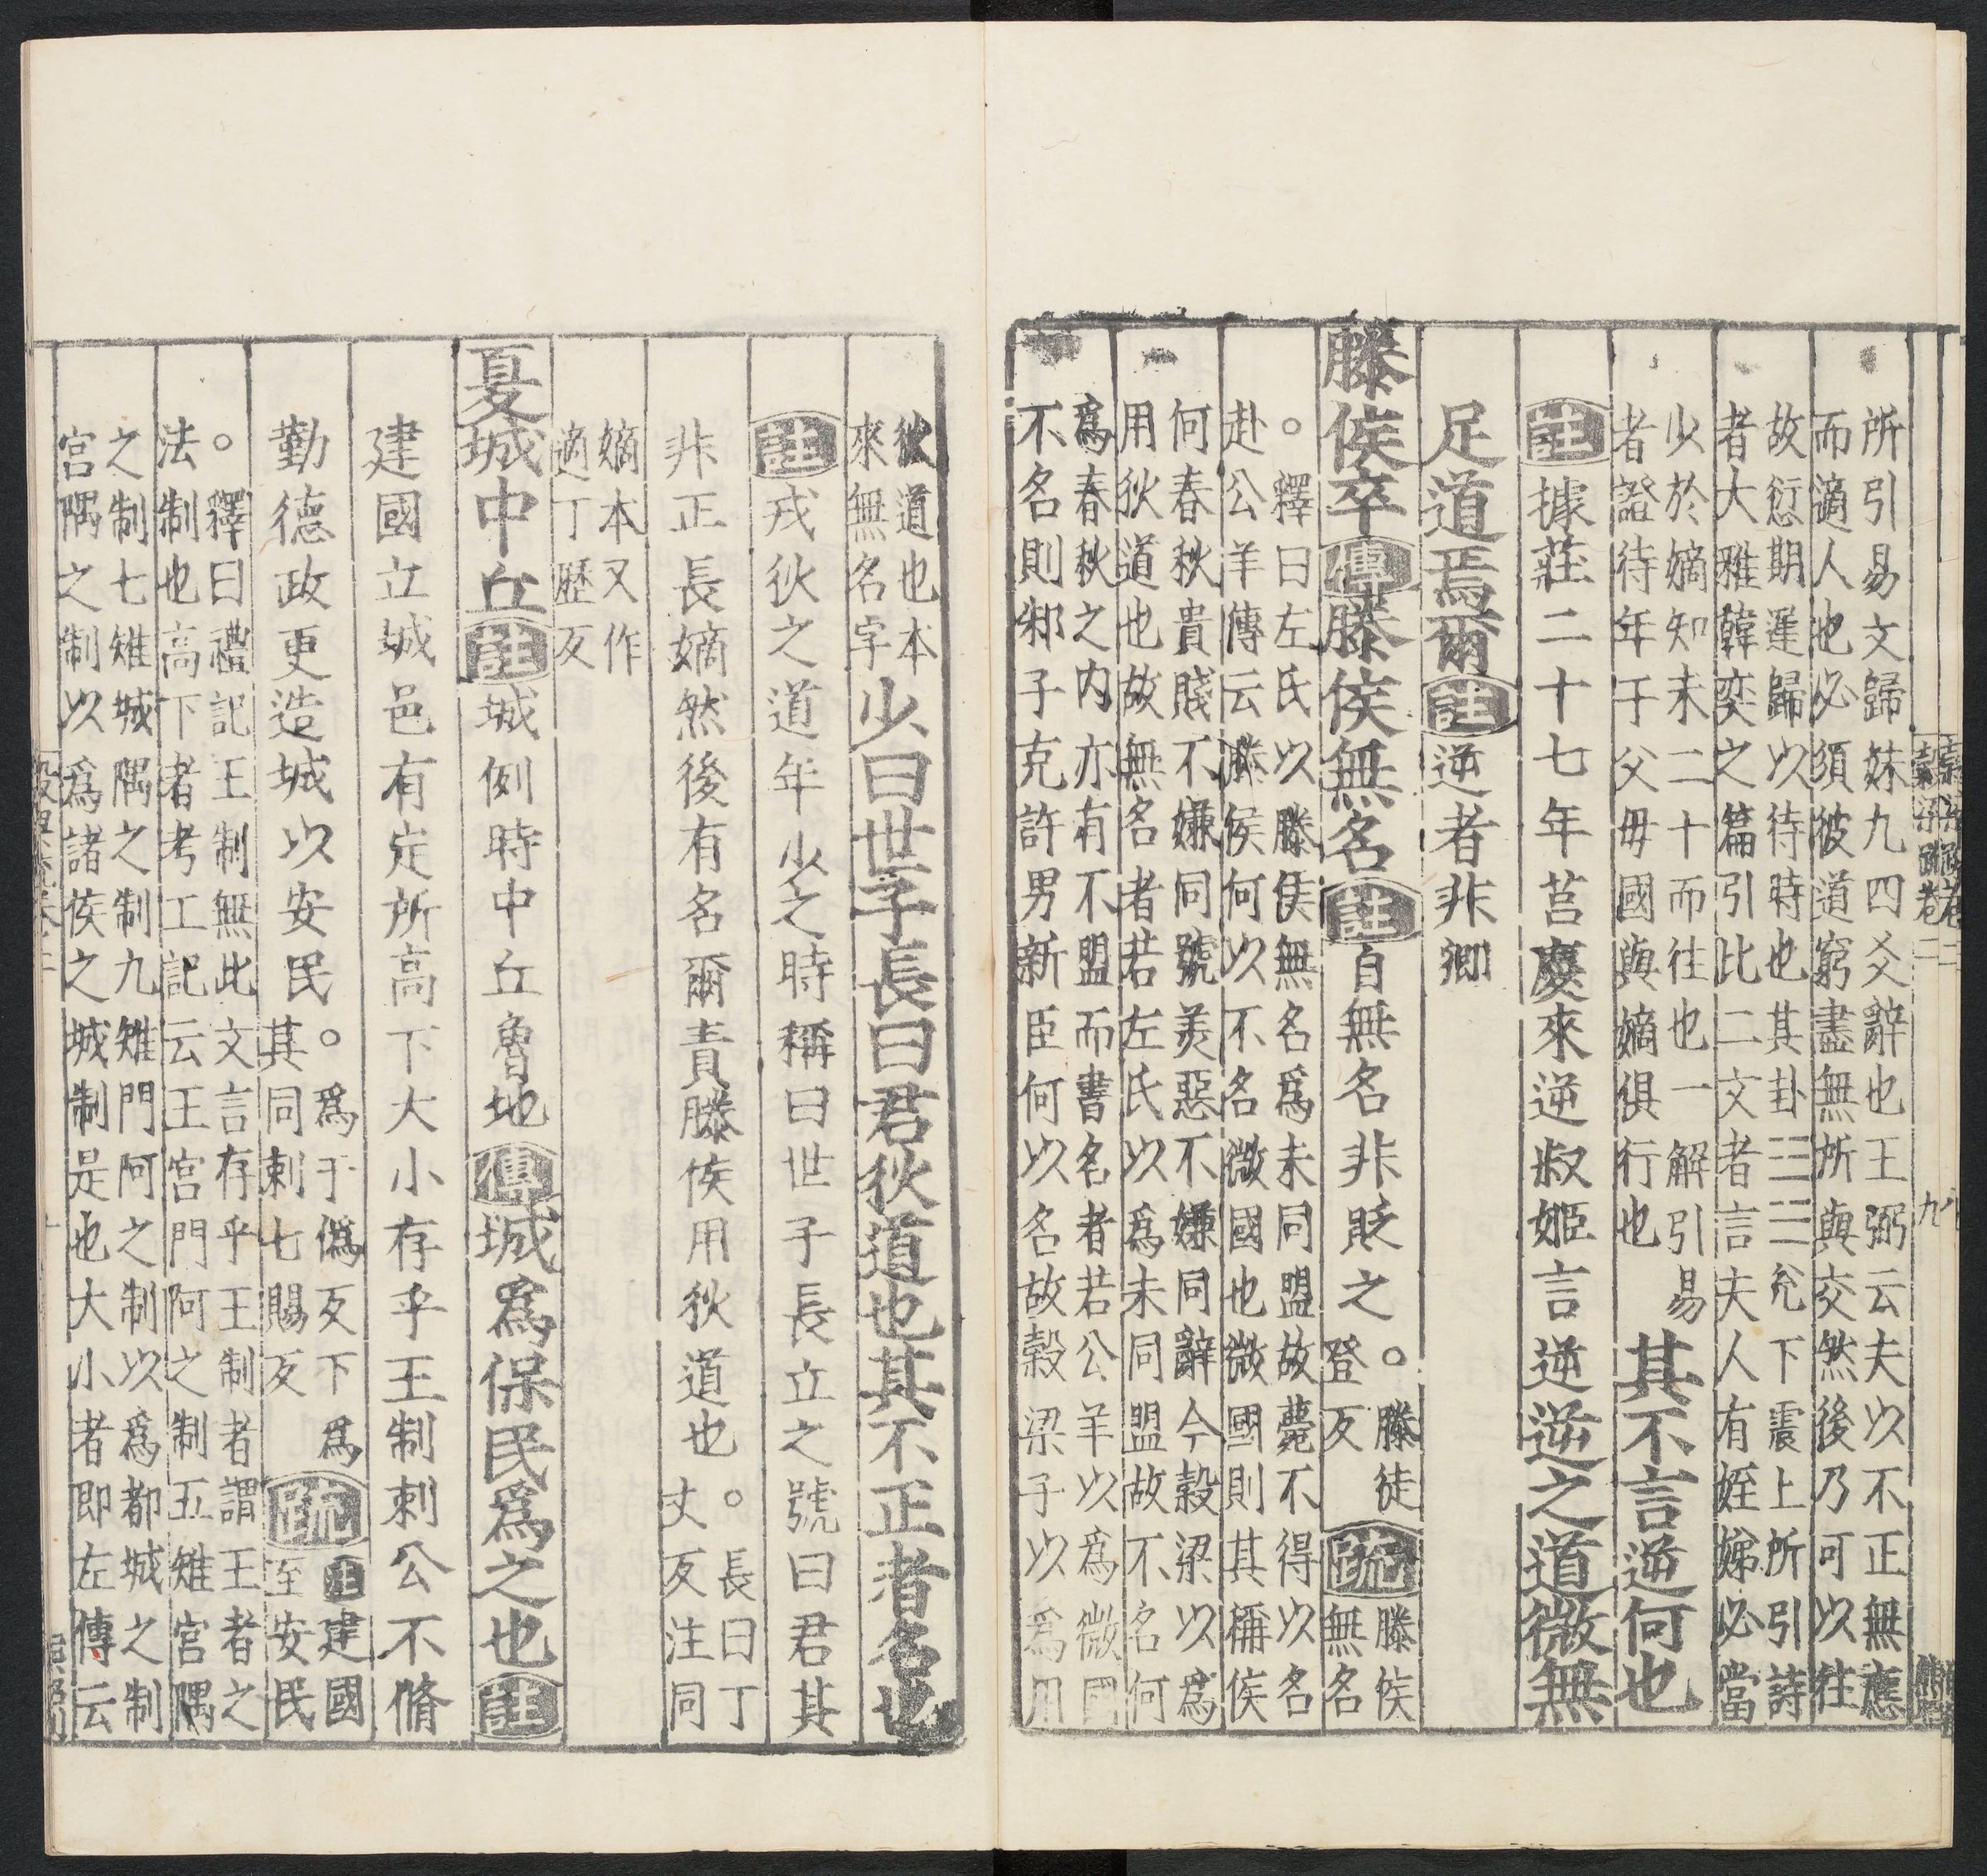 所引易文歸妹九四爻辭也王弼云夫以不正無應
而適人也必須彼道窮盡無所與交然後乃可以往
故愆期遲歸以待時也其卦☱☳兊下震上所引詩
者大雅韓奕之篇引此二文者言夫人有姪娣必當
少於嫡知未二十而往也一解引易
者證待年于父母國與嫡俱行也
其不言逆何也
註據莊二十七年莒慶來逆叔姬言逆逆之道微無
足道焉爾註逆者非卿
滕侯卒傳滕侯無名註自無名非貶之
。滕徒
登反
疏滕侯
無名
。釋曰左氏以滕侯無名爲未同盟故薨不得以名
赴公羊傳云滕侯何以不名微國也微國則其稱侯
何春秋貴賤不嫌同號美惡不嫌同辭今穀梁以爲
用狄道也故無名者若左氏以爲未同盟故不名何
爲春秋之内亦有不盟而書名者若公羊以爲微國
不名則邾子克許男新臣何以名故穀梁子以爲用
狄道也本
來無名字
少曰世子長曰君狄道也其不正者名也
註戎狄之道年少之時稱曰世子長立之號曰君其
非正長嫡然後有名爾責滕侯用狄道也
。長曰丁
丈反注同
嫡本又作
適丁歷反
夏城中丘註城例時中丘魯地傳城爲保民爲之也註
建國立城邑有定所高下大小存乎王制刺公不脩
勤德政更造城以安民
。爲于僞反下爲
其同刺七賜反
疏註建國
至安民
。釋曰禮記王制無此文言存乎王制者謂王者之
法制也高下者考工記云王宮門阿之制五雉宮隅
之制七雉城隅之制九雉門阿之制以爲都城之制
宮隅之制以爲諸侯之城制是也大小者即左傳云